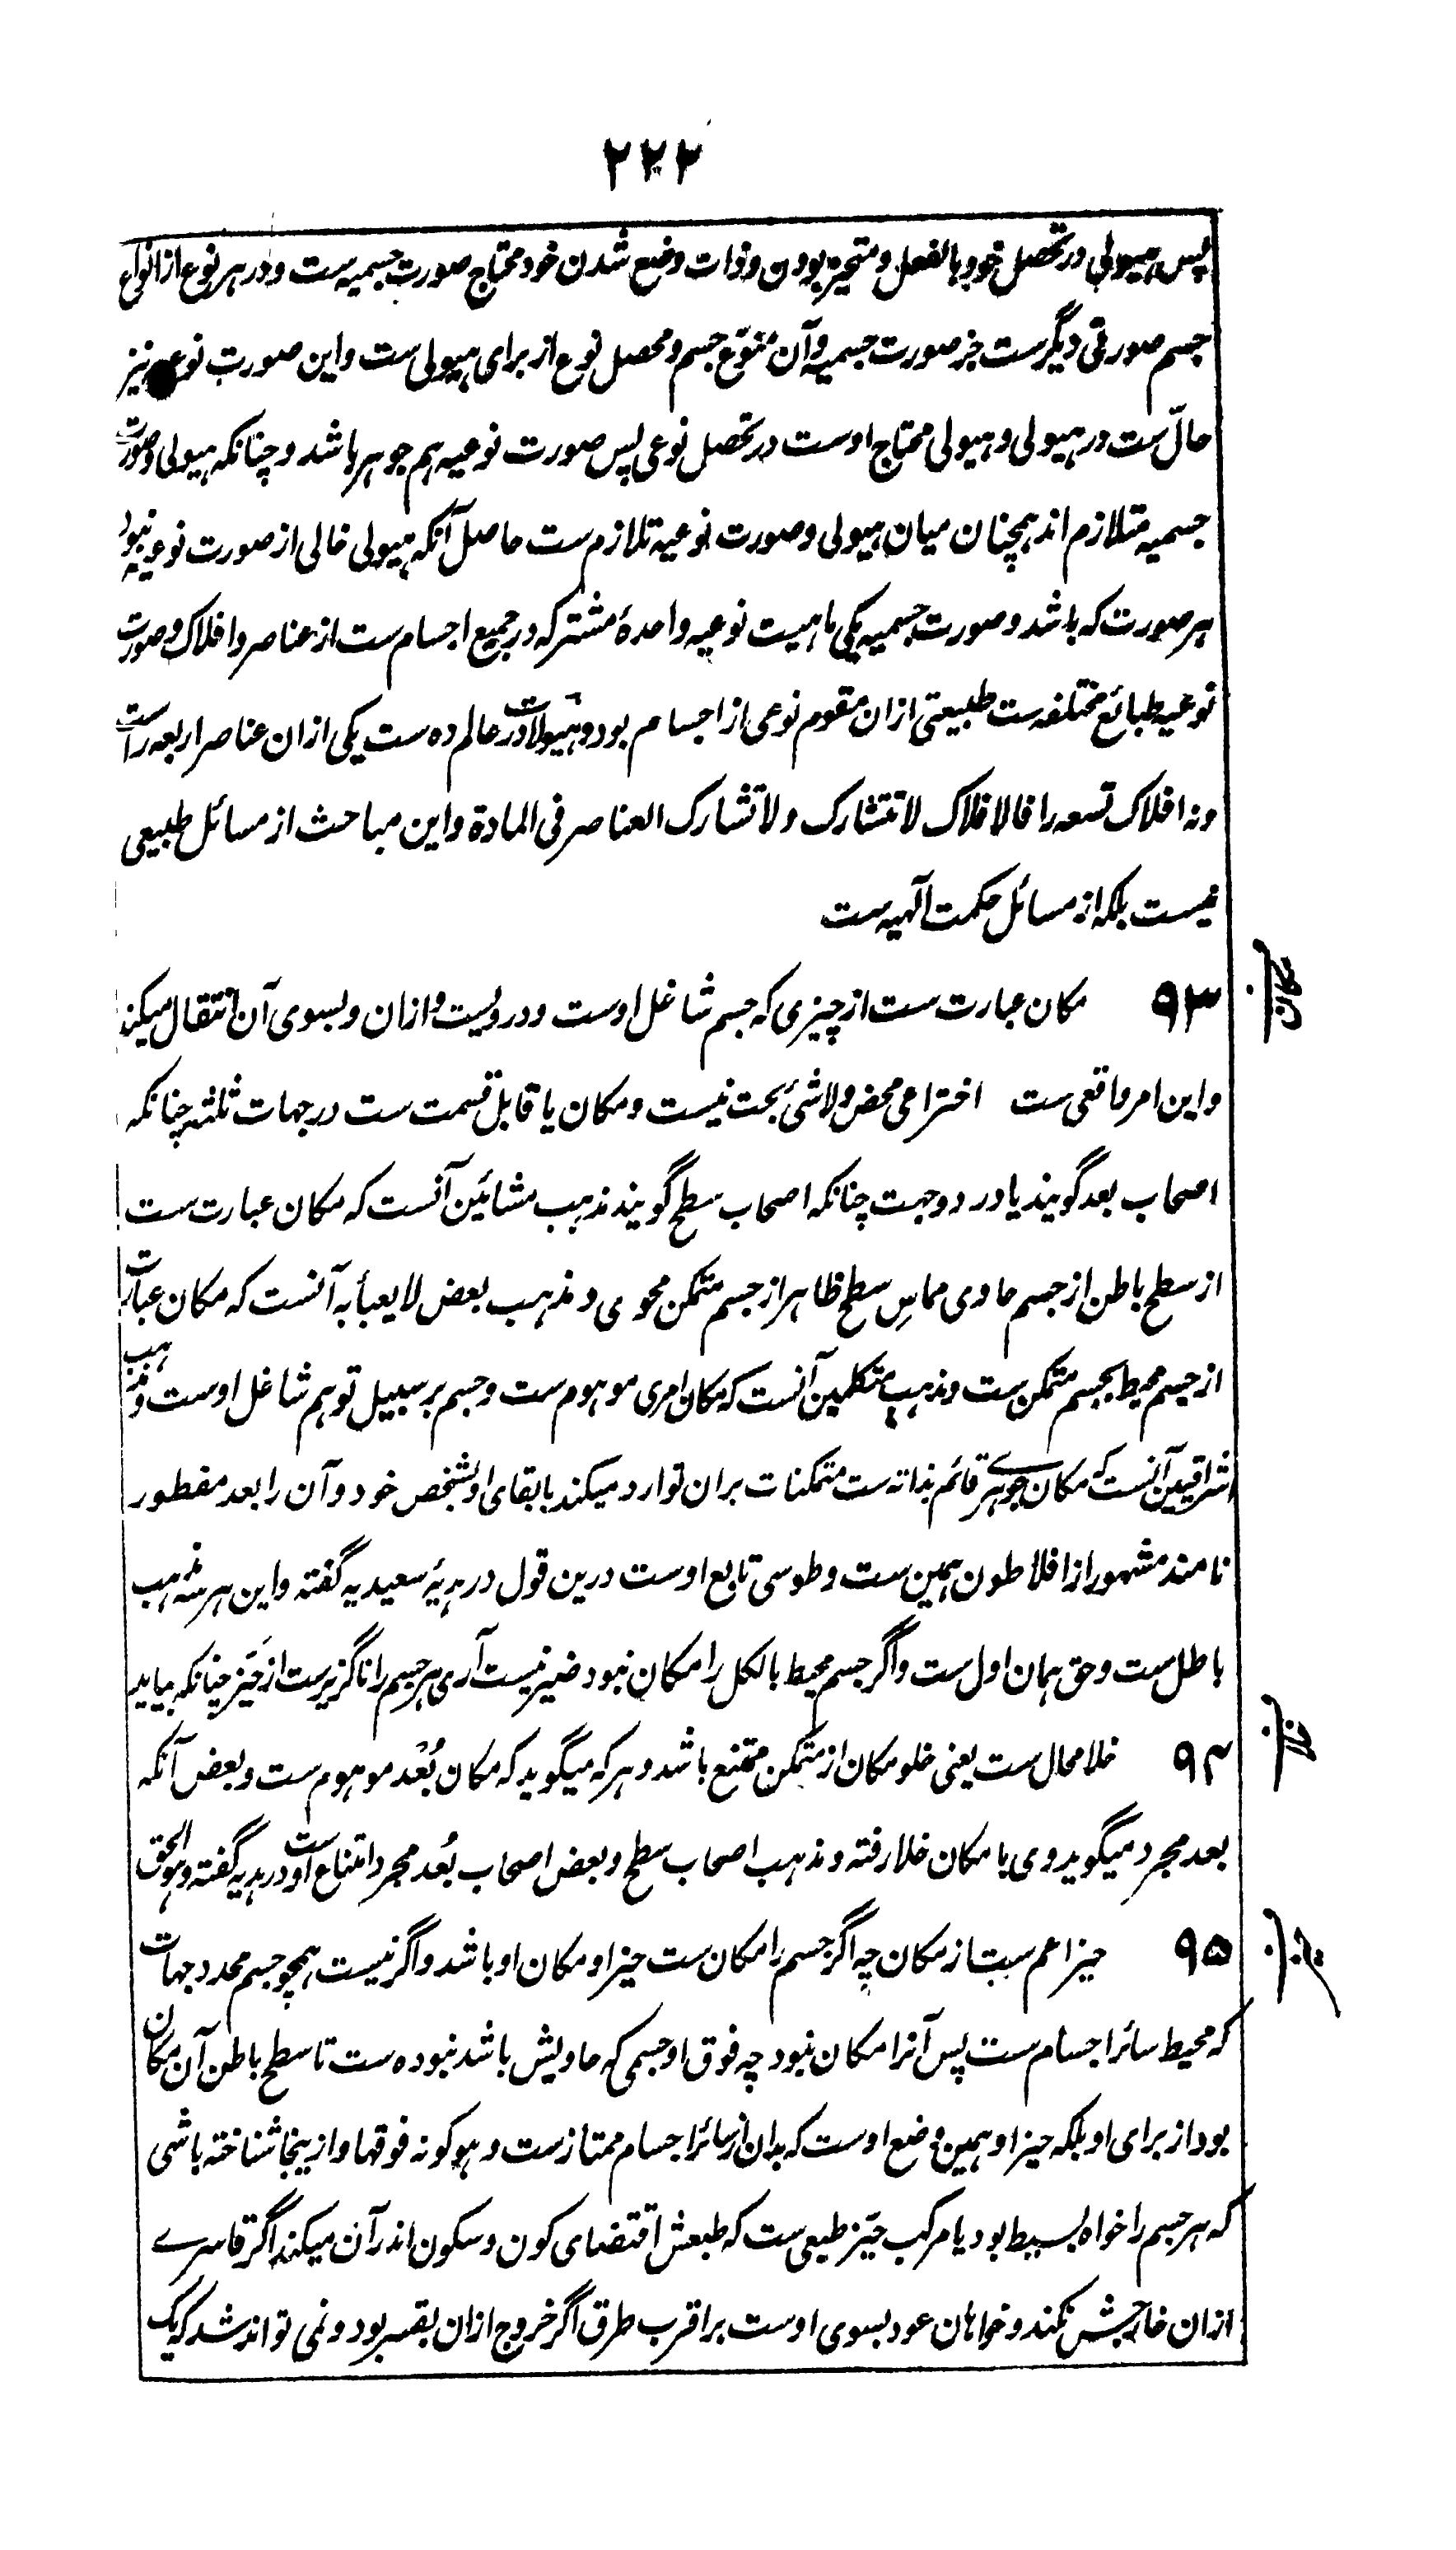 ۲۲۲
پس هیولی در تحصل خود بالفعل و متحیز بودن و ذات وضع شدن خود محتاج صورت جسمیه ست و در هر نوع از انواع
جسم صورتی دیگرست جز صورت جسمیه و آن منوّع جسم و محصل نوع از برای هیولی ست و این صورت نیز
حالّ ست در هیولی و هیولی محتاج اوست در تحصل نوعی پس صورت نوعیه هم جوهر باشد و چنانکه هیولی و صورت
جسمیه متلازم اند همچنان میان هیولی و صورت نوعیه تلازم ست حاصل آنکه هیولی خالی از صورت نوعیه نبود
هر صورت که باشد و صورت جسمیه یکی ماهیت نوعیه واحدهٔ مشترکه در جمیع اجسام ست از عناصر و افلاک و صورت
نوعیه طبائع مختلفه ست طبیعتی ازان مقوم نوعی از اجسام بود و هیولات در عالم ده ست یکی ازان عناصر اربعه راست
و نه افلاک تسعه را فالافلاک لا تتشارک ولا تشارک العناصر فی المادة و این مباحث از مسائل طبیعی
نیست بلکه از مسائل حکمت الٓهیه ست
مکان
۹۳ مکان عبارت ست از چیزی که جسم شاغل اوست و در ویست و ازان و بسوی آن انتقال میکند
و این امر واقعی ست اختراعی محض و لاشئ بحت نیست و مکان یا قابل قسمت ست در جهات ثلثه چنانکه
اصحاب بعد گویند یا در دو جهت چنانکه اصحاب سطح گویند مذهب مشائین آنست که مکان عبارت ست
از سطح باطن از جسم حاوی مماسِ سطح ظاهر از جسم متمکن محوی و مذهب بعض لا یعبأ به آنست که مکان عبارت
از جسم محیط بجسم متمکن ست و مذهب متکلمین آنست که مکان امری موهوم ست و جسم بر سبیل توهم شاغل اوست و مذهب
اشراقیین آنست که مکان جوهرے قائم بذاته ست متمکنات بران توارد میکند با بقای او بشخص خود و آن را بعد مفطور
نامند مشهور از افلاطون همین ست و طوسی تابع اوست درین قول در هدیهٔ سعیدیه گفته و این هر سه مذهب
باطل ست و حق همان اول ست و اگر جسم محیط بالکل را مکان نبود ضیر نیست آری هر جسم را ناگزیرست از حَیّز چنانکه بیاید
خلا
۹۴ خلا محال ست یعنی خلو مکان از متمکن ممتنع باشد و هر که میگوید که مکان بُعْد موهوم ست و بعض آنکه
بعد مجرد میگوید وی بامکان خلا رفته و مذهب اصحاب سطح و بعض اصحاب بُعد مجرد امتناع اوست در هدیه گفته و هو الحق
حیز
۹۵ حیز اعم ست از مکان چه اگر جسم را مکان ست حیز او مکان او باشد و اگر نیست همچو جسم محدد جهات
که محیط سائر اجسام ست پس آنرا مکان نبود چه فوق او جسمی که حاویش باشد نبوده ست تا سطح باطن آن مکان
بود از برای او بلکه حیز او همین وضع اوست که بدان از سائر اجسام ممتازست و هو کونه فوقها و ازینجا شناخته باشی
که هر جسم را خواه بسیط بود یا مرکب حیّز طبعی ست که طبعش اقتضای کون و سکون اندر آن میکند اگر قاسرے
ازان خارجش نکند و خواهان عود بسوی اوست بر اقرب طرق اگر خروج ازان بقسر بود و نمی تواند شد که یک